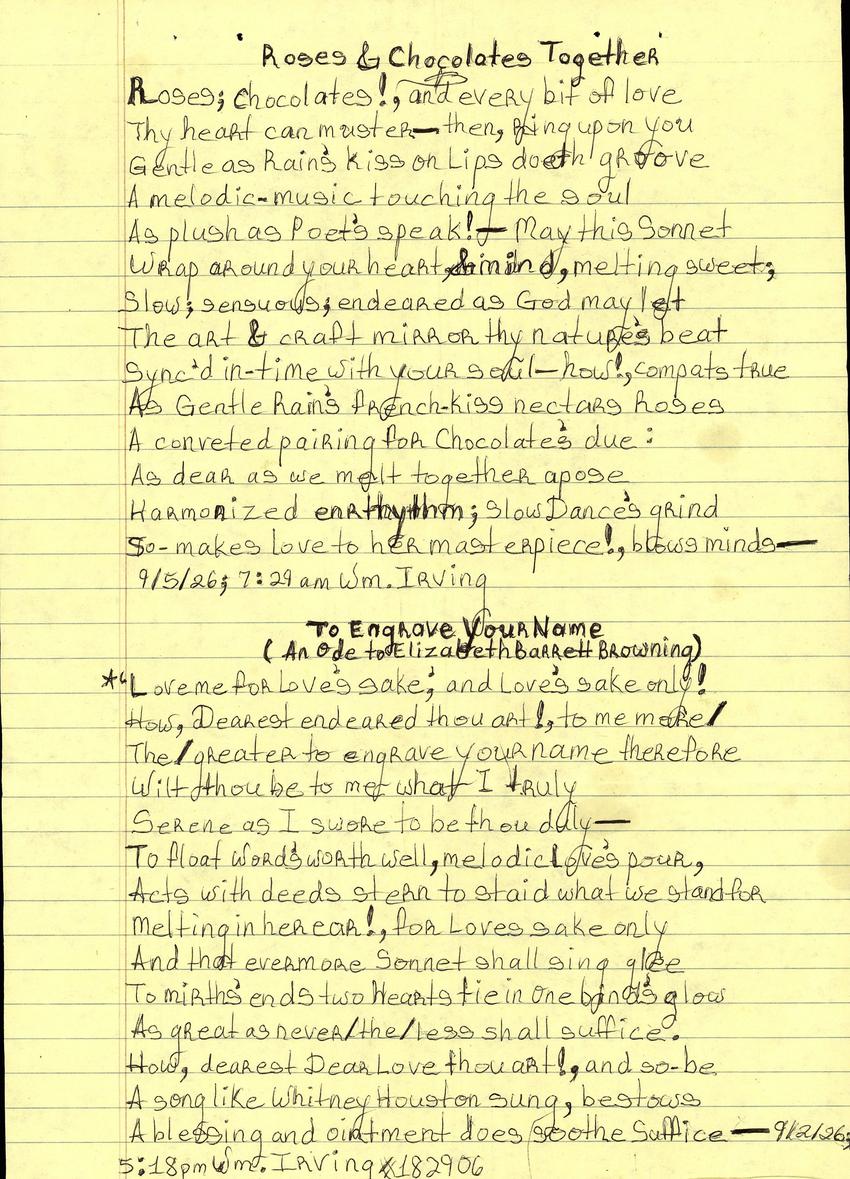 Roses & Chocolates Together
Roses; Chocolates!, and every bit of love
Thy heart can muster— then, bring upon you
Gentle as Rain's kiss on Lips doeth groove
A melodic-music touching the soul
As plush as Poet's speak!— May this Sonnet
Wrap around your heart, & mind, melting sweet;
Slow; sensuous; endeared as God may let
The art & craft mirror thy nature's beat
Sync'd in-time with your soul—how!, compats true
As Gentle Rain's french-kiss nectars Roses
A conveted pairing for Chocolate's due:
As dear as we melt together apose
Harmonized enrhythm; Slow Dance's grind
So-makes love to her masterpiece!, blows minds—
9/5/26; 7:29 am Wm. Irving
To Engrave Your Name
(An Ode to Elizabeth Barrett Browning)
*“Love me for Love's sake; and Love's sake only!
How, Dearest endeared thou art!, to me more/
The/greater to engrave your name therefore
Wilt thou be to me what I truly
Serene as I swore to be thou duly—
To float Words worth well, melodic Love's pour,
Acts with deeds stern to staid what we stand for
Melting in her ear!, for Loves sake only
And that evermore Sonnet shall sing glee
To mirth's ends two Hearts tie in one bond's glow
As great as never/the/less shall suffice.
How, dearest Dear Love thou art!, and so-be
A song like Whitney Houston sung, bestows
A blessing and ointment does soothe Suffice — 9/2/26;
5:18pm Wm. Irving 182906